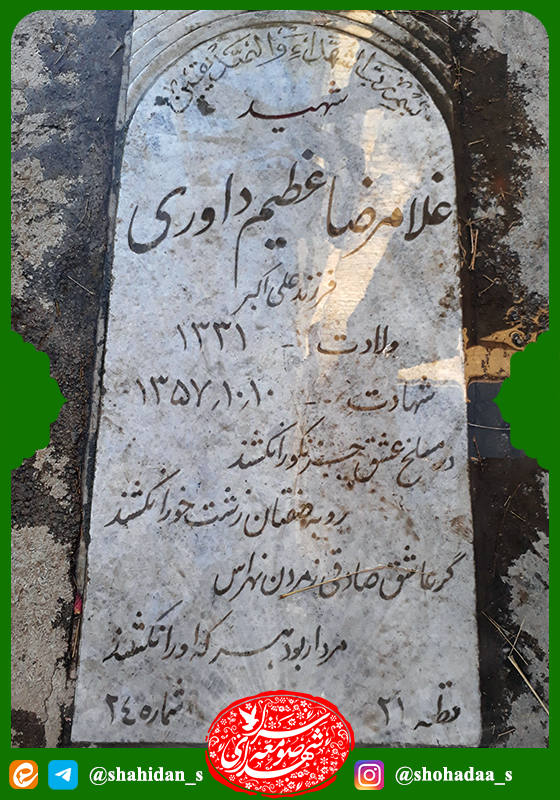 بسم رب الشهداء والصدیقین
شهید
غلامرضا عظیم داوری
فرزند علی اکبر
ولادت - ۱۳۳۱
شهادت - ۱۳۵۷,۱۰,۱۰
در مسلخ عشق جز نکو را نکشند
روبه صفتان زشت خو را نکشند
گر عاشق صادقی ز مردن نهراس
مردار بود هر که او را نکشند
قطعه ۲۱ شماره ۲۴
شهدای صومعه سرا
@shahidan_s @shohadaa_s